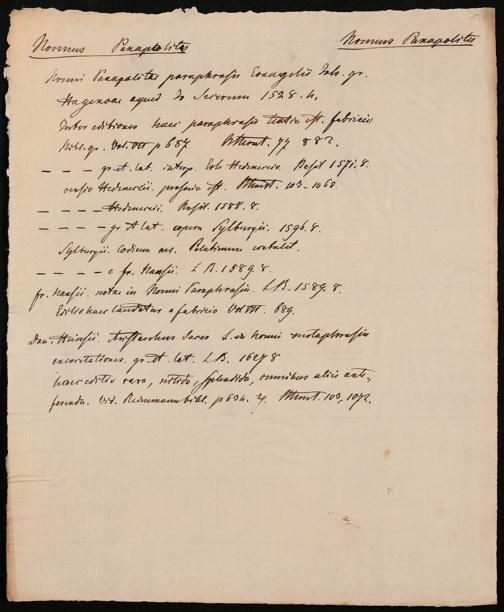 Nonnus Panapolites
Nonnus Panapolites
Nonni Panapolitae paraphrasis Evangelii Joh. gr.
Hagenoae apud Jo Secerum 1528. 4.
Inter editiones haec paraphrasis tertia est. fabricii
Bibl. gr. Vol. VII p 687 77 882.
— — — gr. et. lat. interp. Erh Hedeneccio. Basil 1571. 8.
versio Hedeneccii. prosario est. 103-1068.
— — — — Hedeneccii. Basil. 1588. 8.
— — — — gr et lat. opera Sylburgii. 1596. 8.
Sylburgii. Codicem ms. Palatinum contulit.
— — — — c fr. Nansii. L B. 1589. 8.
fr. Nansii. notae in Nonni Paraphrasin. L B. 1589. 8.
Editio haec laudatur a fabricio Vol VII. 689.
Dan. Heinsii. Aristarchus Sacer S. in Nonni metaphrasin
exercitationes. gr. et. lat. L B. 1627 8
haec editio rara, nitida, splendida, omnibus aliis ante-
ferenda. Vid. Reimmann bibl. p 634. 103, 1072.